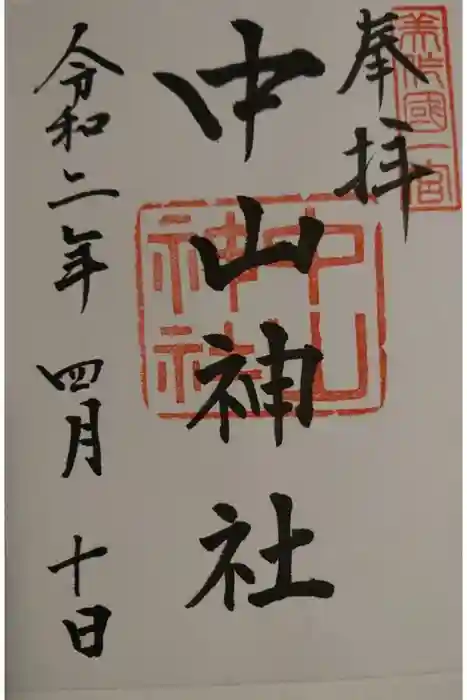 奉拝
美作國一宮
中山神社
中山
神社
令和二年 四月 十日